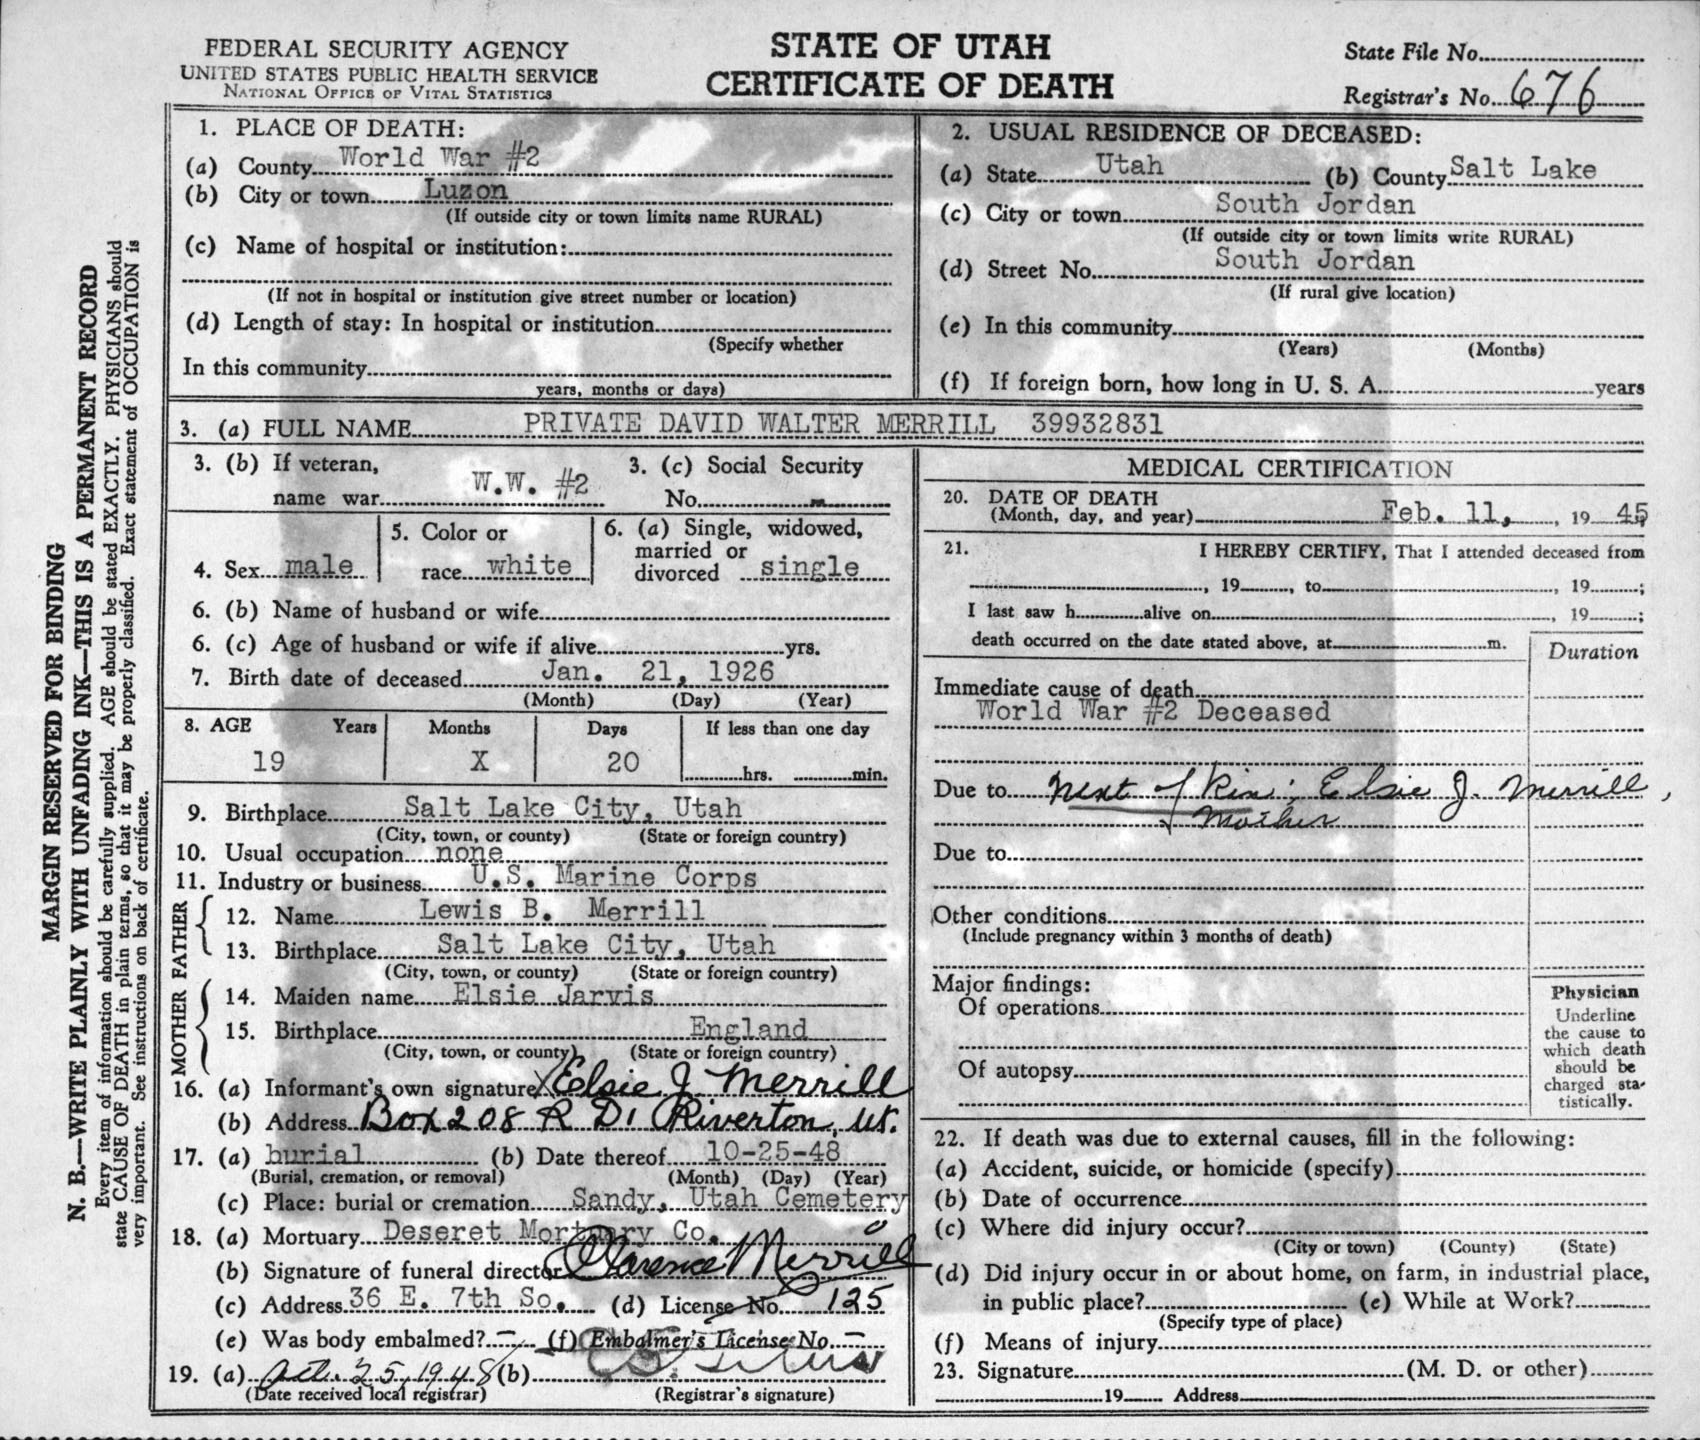 FEDERAL SECURITY AGENCY
UNITED STATES PUBLIC HEALTH SERVICE
NATIONAL OFFICE OF VITAL STATISTICS
STATE OF UTAH
CERTIFICATE OF DEATH
State File No.
Registrar's No. 676
MARGIN RESERVED FOR BINDING
N. B.—WRITE PLAINLY WITH UNFADING INK—THIS IS A PERMANENT RECORD
Every item of information should be carefully supplied. AGE should be stated EXACTLY. PHYSICIANS should
state CAUSE OF DEATH in plain terms, so that it may be properly classified. Exact statement of OCCUPATION is
very important. See instructions on back of certificate.
1. PLACE OF DEATH:
(a) County World War #2
(b) City or town Luzon
(If outside city or town limits name RURAL)
(c) Name of hospital or institution:
(If not in hospital or institution give street number or location)
(d) Length of stay: In hospital or institution
(Specify whether
In this community
years, months or days)
2. USUAL RESIDENCE OF DECEASED:
(a) State Utah (b) County Salt Lake
(c) City or town South Jordan
(If outside city or town limits write RURAL)
(d) Street No. South Jordan
(If rural give location)
(e) In this community
(Years) (Months)
(f) If foreign born, how long in U. S. A. years
3. (a) FULL NAME PRIVATE DAVID WALTER MERRILL 39932831
3. (b) If veteran,
name war W.W. #2
3. (c) Social Security
No.
4. Sex male
5. Color or
race white
6. (a) Single, widowed,
married or
divorced single
6. (b) Name of husband or wife
6. (c) Age of husband or wife if alive yrs.
7. Birth date of deceased Jan. 21, 1926
(Month) (Day) (Year)
8. AGE Years Months Days If less than one day
19 X 20 hrs. min.
9. Birthplace Salt Lake City, Utah
(City, town, or county) (State or foreign country)
10. Usual occupation none
11. Industry or business U.S. Marine Corps
FATHER
12. Name Lewis B. Merrill
13. Birthplace Salt Lake City, Utah
(City, town, or county) (State or foreign country)
MOTHER
14. Maiden name Elsie Jarvis
15. Birthplace England
(City, town, or county) (State or foreign country)
16. (a) Informant's own signature X Elsie J Merrill
(b) Address Box 208 R D1 Riverton, Ut.
17. (a) burial (b) Date thereof 10-25-48
(Burial, cremation, or removal) (Month) (Day) (Year)
(c) Place: burial or cremation Sandy, Utah Cemetery
18. (a) Mortuary Deseret Mortuary Co.
(b) Signature of funeral director Clarence Merrill
(c) Address 36 E. 7th So. (d) License No. 125
(e) Was body embalmed? — (f) Embalmer's License No. —
19. (a) Oct. 25, 1948 (b)
(Date received local registrar) (Registrar's signature)
MEDICAL CERTIFICATION
20. DATE OF DEATH
(Month, day, and year) Feb. 11, , 19 45
21. I HEREBY CERTIFY, That I attended deceased from
, 19 , to , 19 ;
I last saw h alive on , 19 ;
death occurred on the date stated above, at m.
Duration
Immediate cause of death
World War #2 Deceased
Due to Next of Kin: Elsie J. Merrill,
Mother
Due to
Other conditions
(Include pregnancy within 3 months of death)
Major findings:
Of operations
Of autopsy
Physician
Underline
the cause to
which death
should be
charged sta-
tistically.
22. If death was due to external causes, fill in the following:
(a) Accident, suicide, or homicide (specify)
(b) Date of occurrence
(c) Where did injury occur?
(City or town) (County) (State)
(d) Did injury occur in or about home, on farm, in industrial place,
in public place? (e) While at Work?
(Specify type of place)
(f) Means of injury
23. Signature (M. D. or other)
19 Address